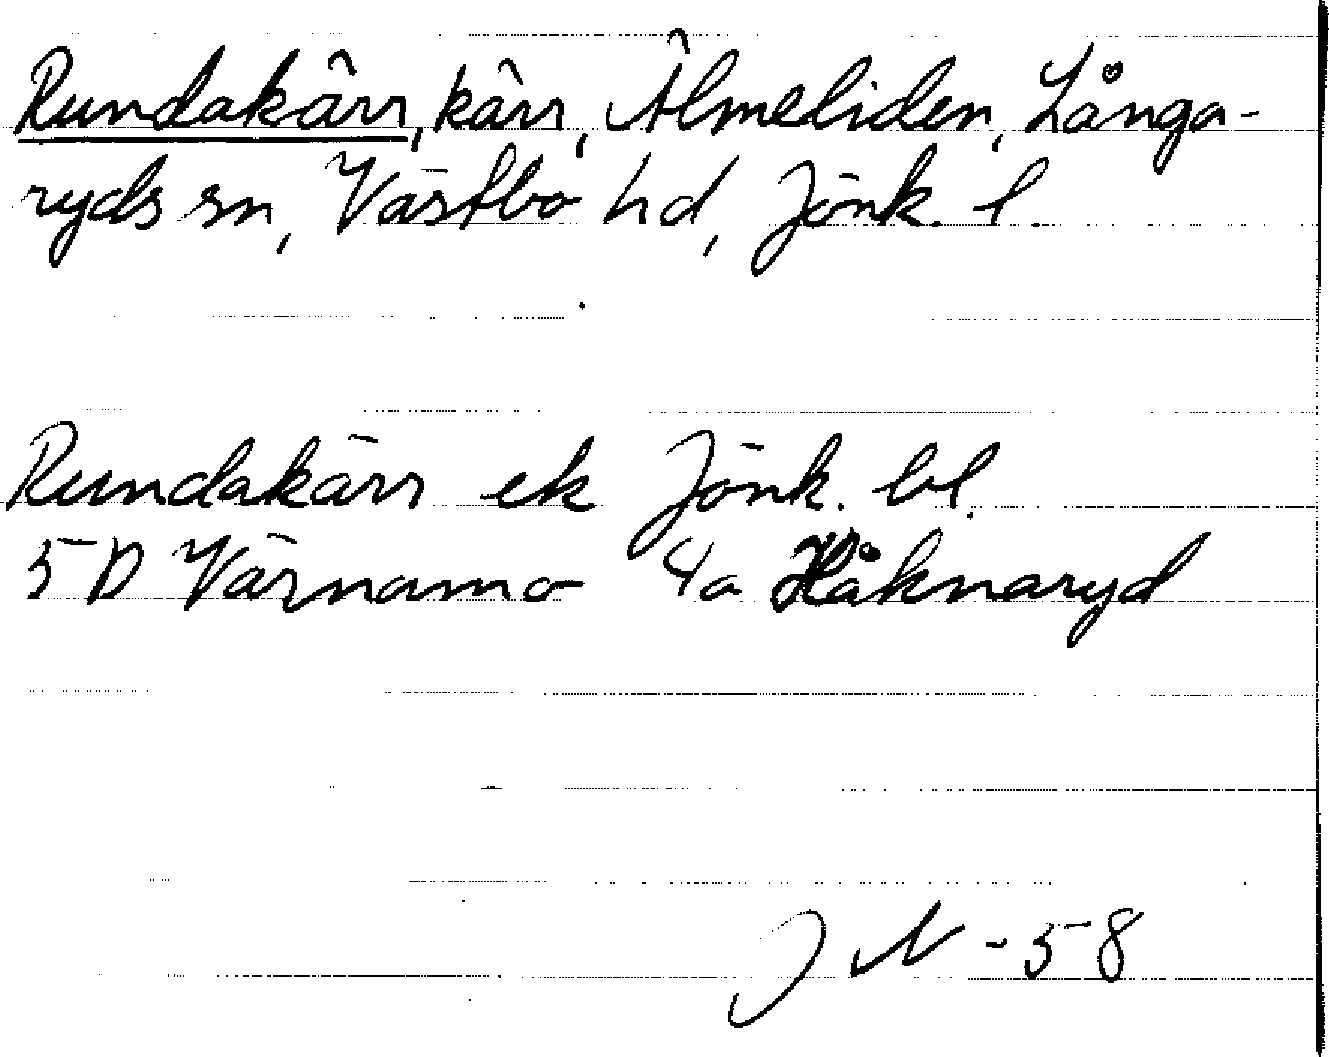 Rundakärr, kärr, Älmeliden, Långa-
ryds sn, Västbo hd, Jönk. l.
Rundakärr ek Jönk. bl.
5D Värnamo 4a Håknaryd
JN -58